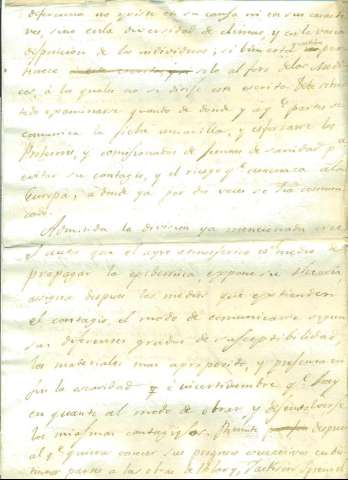 diferencia no existe en su causa ni en sus caracte
res, sino en la diversidad de climas, y en la varia
disposicion de los individuos, si bien esta
nece solo al foro de los Medi
cos, á los quales no se dirije este escrito. Debe
examinarse quando de donde y á q.e partes se
comunica la fiebre amarilla, y esforzarse los
Profesores, y comisionados de juntas de sanidad p.a
evitar su contagio, y el riesgo q.e amenaza á la
Europa, á donde ya por dos veces se ha comuni
cado.
Admitida la division ya mencionada
que el ayre atmosferico es el medio de
propagar la epidemia, expone su
asigna despues los medios que extienden
el contagio, el modo de comunicarse segun
sus diferentes grados de susceptibilidad,
los materiales mas aproposito, y presenta en
fin la escuridad é incertidumbre q.e hay
en quanto al modo de obrar, y desenvolverse
los miasmas contagiosos. Remite despues
al q.e quiera conocer sus progresos succesivos en di
versas partes á las obras de Jackson